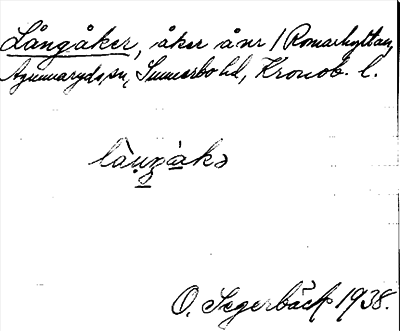 Långåker, åker å nr 1 Romarhyttan,
Agunnaryds sn, Sunnerbo hd, Kronob. l.
làŋgàkə
O. Segerbäck 1938.